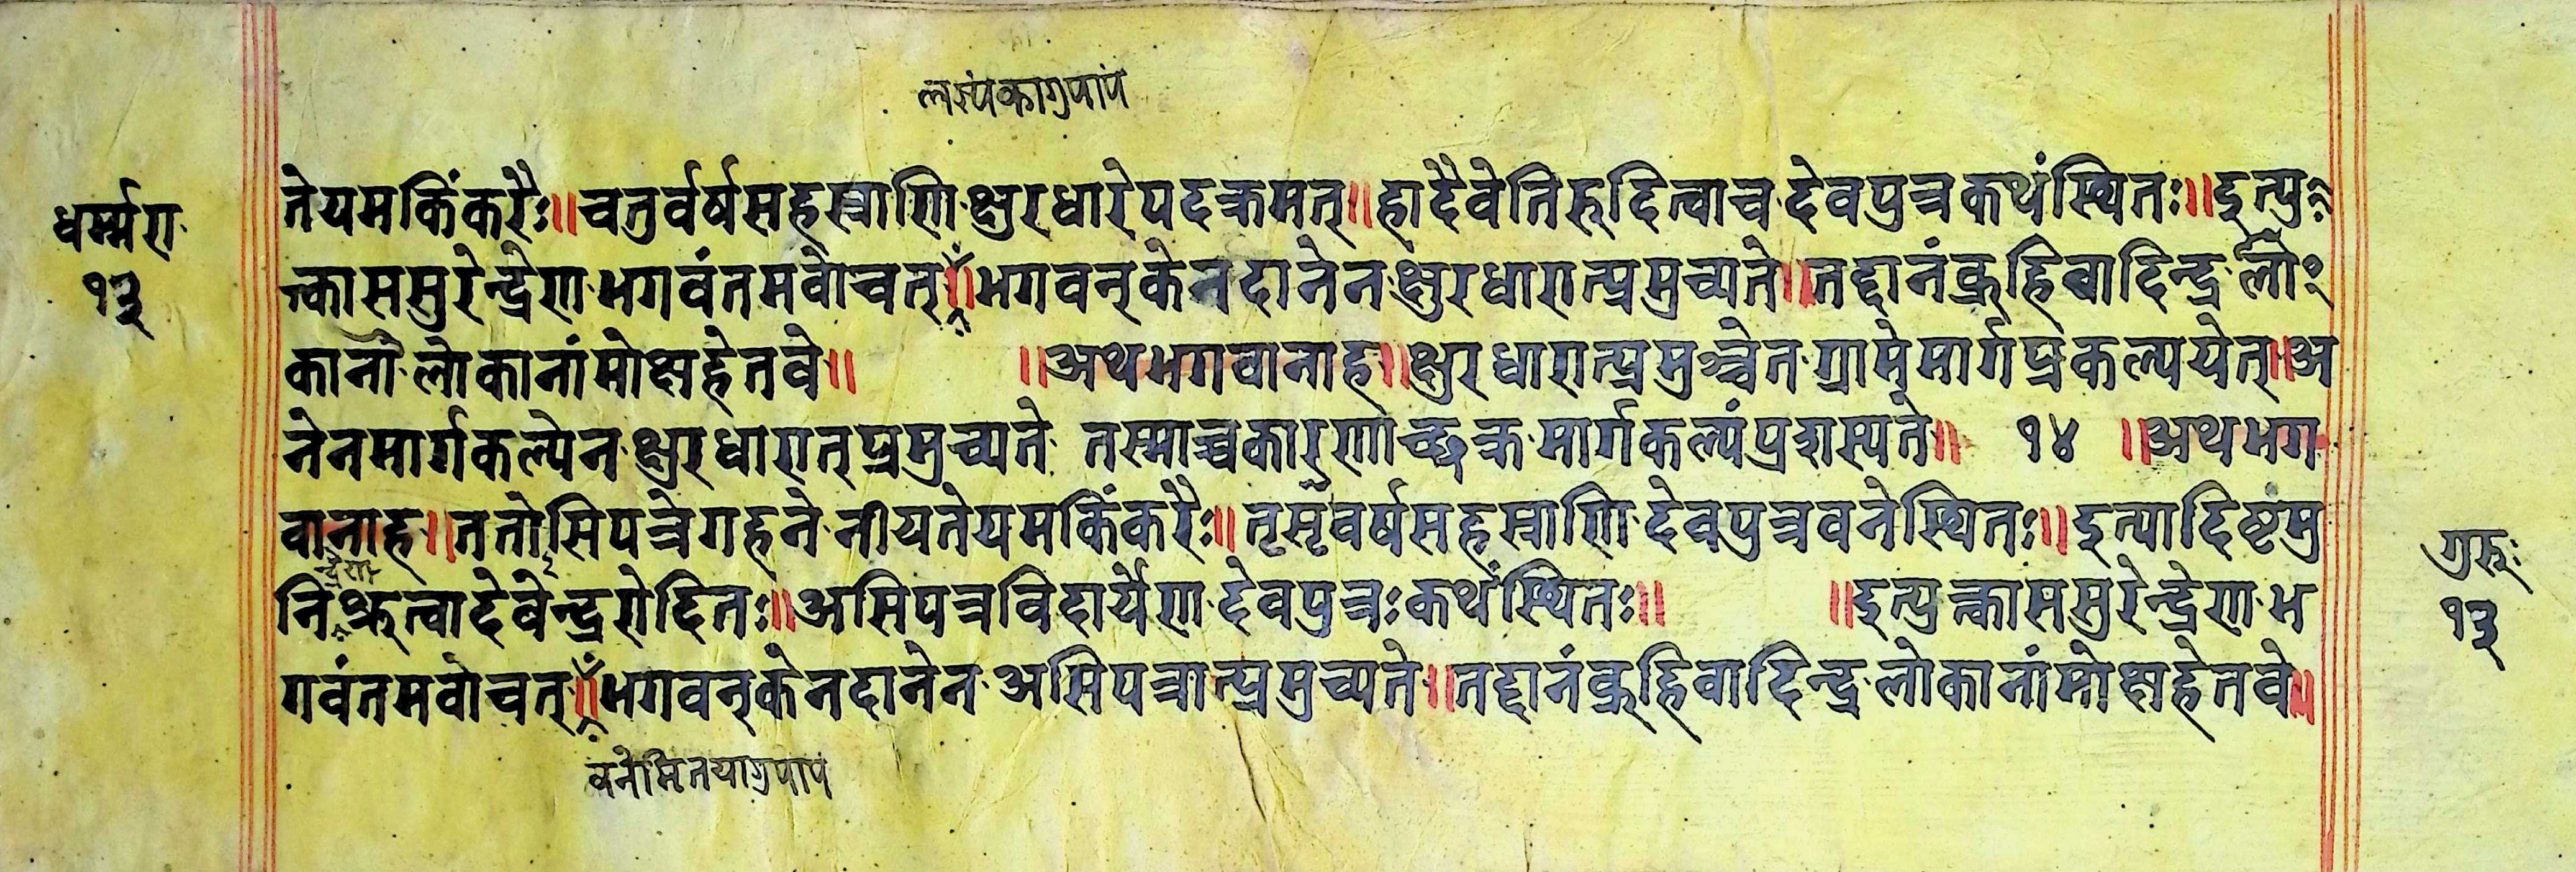 लसंपंकागुपापं
धर्म्मरा
१३
तेयमकिंकरैः॥चतुर्वर्षसहस्राणि क्षुरधारेपदक्रमत्॥हादैवेतिरुदित्वाच देवपुत्रकथंस्थितः॥इत्यु
क्त्काससुरेन्द्रेण भगवंतमवोचत्॥भगवन्केनदानेन क्षुरधारात्प्रमुच्यते॥तद्दानंब्रूहिवादिन्द्र लो
कानां लोकानांमोक्षहेतवे॥ ॥अथभगवानाह॥क्षुरधारात्प्रमुञ्चेत ग्रामेमार्गप्रकल्पयेत्॥अ
नेनमार्गकल्पेन क्षुरधारात्प्रमुच्यते तस्माच्चकारणाच्छक्र मार्गकल्पंप्रशस्यते॥ १४ ॥अथभग
वानाह॥ततोसिपत्रेगहने नीयतेयमकिंकरैः॥तृसृवर्षसहस्राणि देवपुत्रवनेस्थितः॥इत्यादिष्टंमु
नि श्रुत्वादेवेन्द्ररोदितः॥असिपत्रविदार्येण देवपुत्रःकथंस्थितः॥ ॥इत्युक्त्काससुरेन्द्रेण भ
न्द्रेण
गवंतमवोचत्॥भगवन्केनदानेन असिपत्रात्प्रमुच्यते॥तद्दानंब्रूहिवादिन्द्र लोकानांमोक्षहेतवे॥
वनेमितयागुपाप
गुरुः
१३